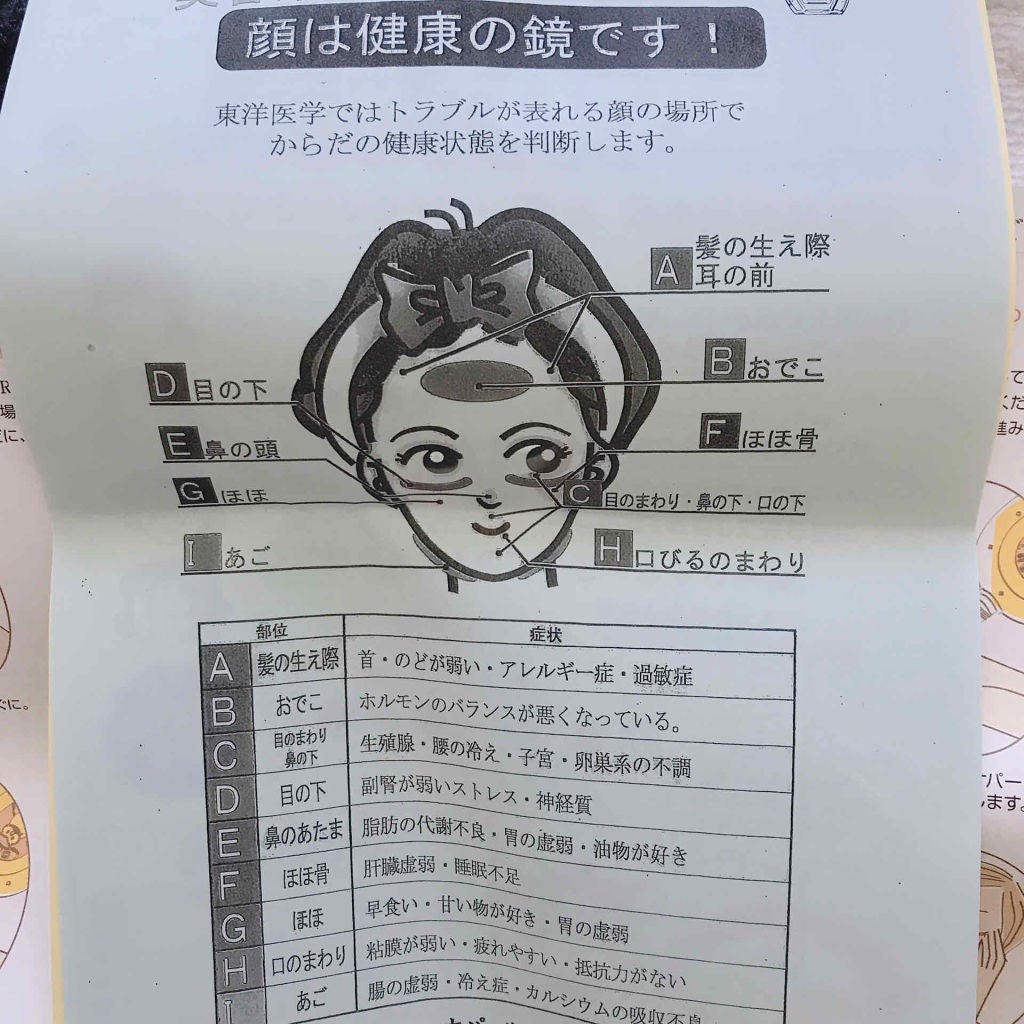 顔は健康の鏡です！
東洋医学ではトラブルが表れる顔の場所で
からだの健康状態を判断します。
A 髪の生え際
耳の前
B おでこ
D 目の下
F ほほ骨
E 鼻の頭
G ほほ
C 目のまわり・鼻の下・口の下
H 口びるのまわり
I あご
部位 症状
A 髪の生え際 首・のどが弱い・アレルギー症・過敏症
B おでこ ホルモンのバランスが悪くなっている。
C 目のまわり 鼻の下 生殖腺・腰の冷え・子宮・卵巣系の不調
D 目の下 副腎が弱いストレス・神経質
E 鼻のあたま 脂肪の代謝不良・胃の虚弱・油物が好き
F ほほ骨 肝臓虚弱・睡眠不足
G ほほ 早食い・甘い物が好き・胃の虚弱
H 口のまわり 粘膜が弱い・疲れやすい・抵抗力がない
I あご 腸の虚弱・冷え症・カルシウムの吸収不良
R
場
だに、
ぐに。
て
くだ
進み
パー
します。